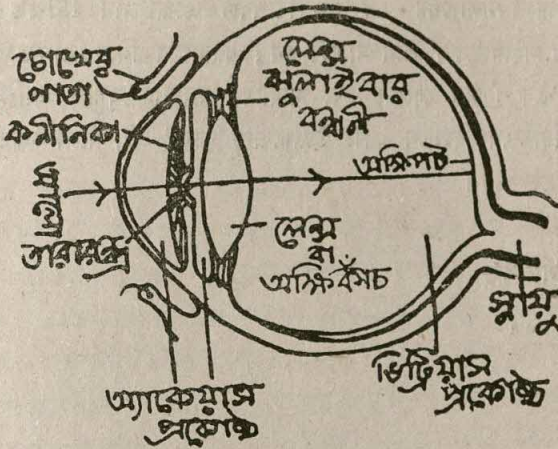 চোখের
পাতা
কনীনিকা
আলো
তারারন্ধ্র
লেন্স
ঝুলাইবার
বন্ধনী
অক্ষিপট
লেন্স
বা
অক্ষিকাঁচ
স্নায়ু
ভিট্রিয়াস
প্রকোষ্ঠ
অ্যাকেয়াস
প্রকোষ্ঠ